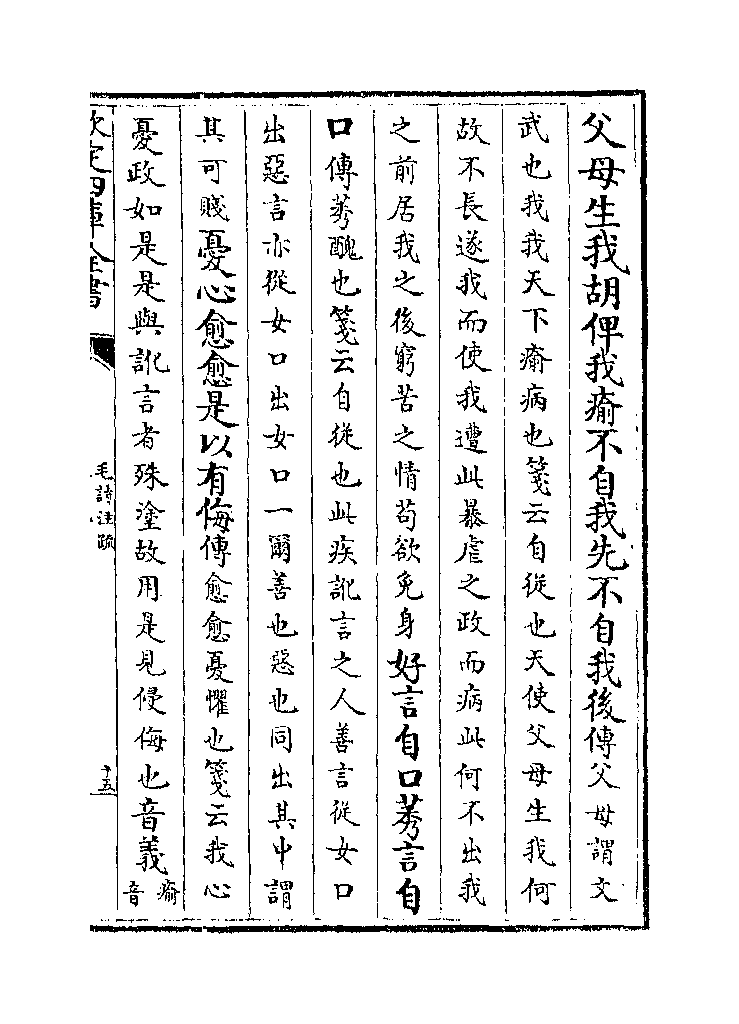 父母生我胡俾我瘉不自我先不自我後傳父母謂文
武也我我天下瘉病也箋云自從也天使父母生我何
故不長遂我而使我遭此暴虐之政而病此何不出我
之前居我之後窮苦之情苟欲免身好言自口莠言自
口傳莠醜也箋云自從也此疾訛言之人善言從女口
出惡言亦從女口出女口一爾善也惡也同出其中謂
其可賤憂心愈愈是以有侮傳愈愈憂懼也箋云我心
憂政如是是與訛言者殊塗故用是見侵侮也音義瘉
音
欽定四庫全書
毛詩注疏
十五